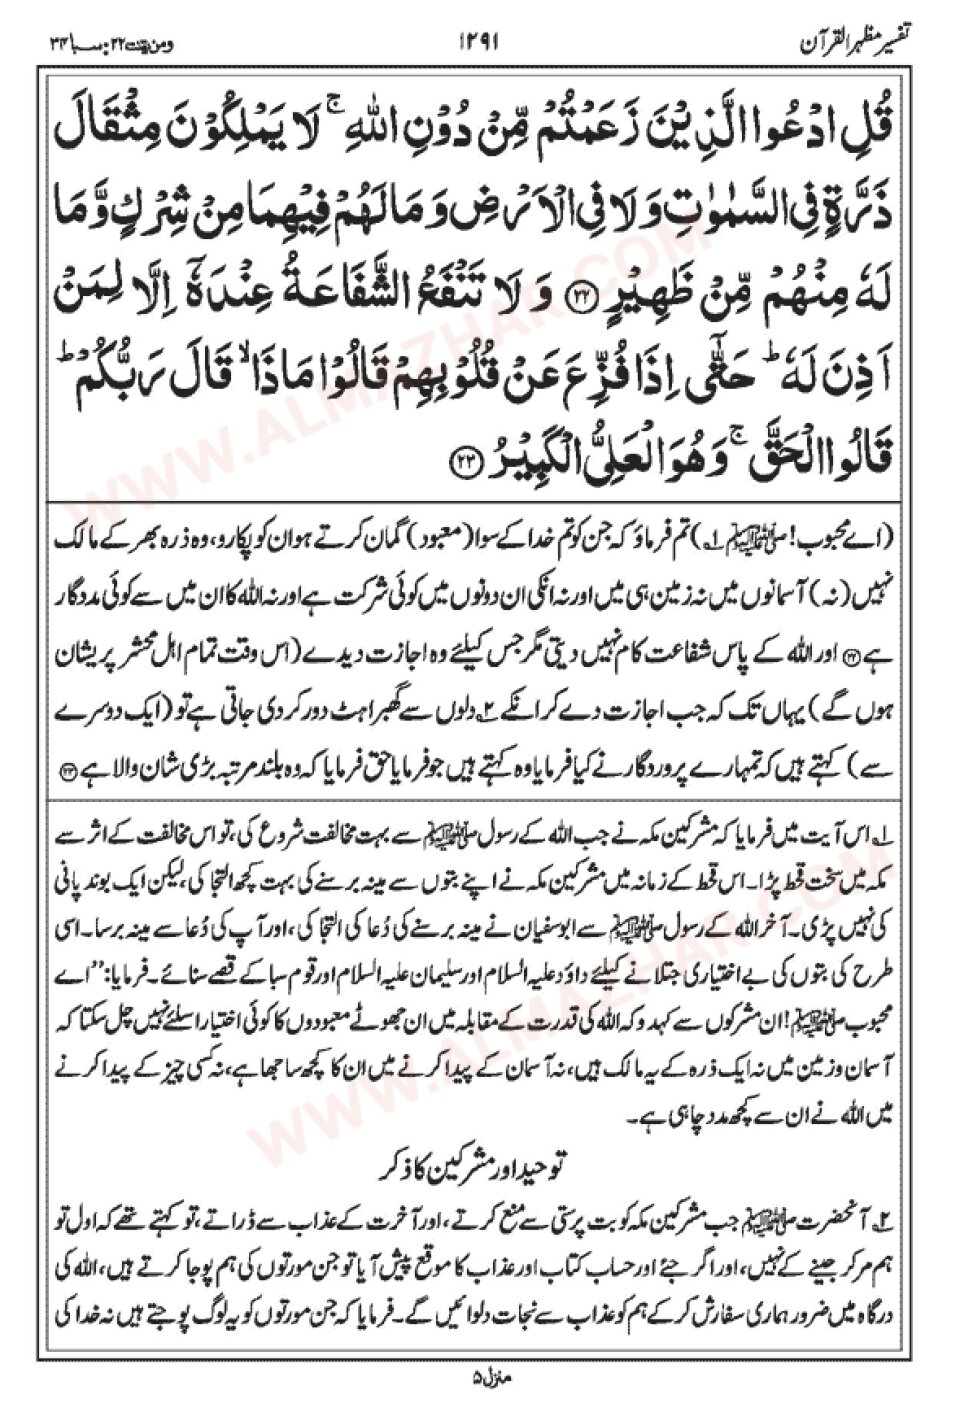 تفسیر مظہر القرآن ۱۲۹۱ ومن یقنت ۲۲: سبا ۳۴
قُلِ ادْعُوا الَّذِيْنَ زَعَمْتُمْ مِّنْ دُوْنِ اللّٰهِ ۚ لَا يَمْلِكُوْنَ مِثْقَالَ
ذَرَّةٍ فِي السَّمٰوٰتِ وَلَا فِي الْاَرْضِ وَمَا لَهُمْ فِيْهِمَا مِنْ شِرْكٍ وَّمَا
لَهٗ مِنْهُمْ مِّنْ ظَهِيْرٍ ﴿۲۲﴾ وَلَا تَنْفَعُ الشَّفَاعَةُ عِنْدَهٗٓ اِلَّا لِمَنْ
اَذِنَ لَهٗ ؕ حَتّٰٓى اِذَا فُزِّعَ عَنْ قُلُوْبِهِمْ قَالُوْا مَاذَا ۙ قَالَ رَبُّكُمْ ؕ
قَالُوا الْحَقَّ ۚ وَهُوَ الْعَلِيُّ الْكَبِيْرُ ﴿۲۳﴾
(اے محبوب! ﷺ ۱؎) تم فرماؤ کہ جن کو تم خدا کے سوا (معبود) گمان کرتے ہو ان کو پکارو، وہ ذرہ بھر کے مالک
نہیں (نہ) آسمانوں میں نہ زمین ہی میں اور نہ انکی ان دونوں میں کوئی شرکت ہے اور نہ اللہ کا ان میں سے کوئی مددگار
ہے ﴿۲۲﴾ اور اللہ کے پاس شفاعت کام نہیں دیتی مگر جس کیلئے وہ اجازت دیدے (اس وقت تمام اہل محشر پریشان
ہوں گے) یہاں تک کہ جب اجازت دے کر انکے ۲؎ دلوں سے گھبراہٹ دور کردی جاتی ہے تو (ایک دوسرے
سے) کہتے ہیں کہ تمہارے پروردگار نے کیا فرمایا وہ کہتے ہیں جو فرمایا حق فرمایا کہ وہ بلند مرتبہ بڑی شان والا ہے ﴿۲۳﴾
۱؎ اس آیت میں فرمایا کہ مشرکین مکہ نے جب اللہ کے رسول ﷺ سے بہت مخالفت شروع کی، تو اس مخالفت کے اثر سے
مکہ میں سخت قحط پڑا۔ اس قحط کے زمانہ میں مشرکین مکہ نے اپنے بتوں سے مینہ برسنے کی بہت کچھ التجا کی، لیکن ایک بوند پانی
کی نہیں پڑی۔ آخر اللہ کے رسول ﷺ سے ابوسفیان نے مینہ برسنے کی دُعا کی التجا کی، اور آپ کی دُعا سے مینہ برسا۔ اسی
طرح کی بتوں کی بے اختیاری جتلانے کیلئے داؤد علیہ السلام اور سلیمان علیہ السلام اور قوم سبا کے قصے سنائے۔ فرمایا: "اے
محبوب ﷺ! ان مشرکوں سے کہدو کہ اللہ کی قدرت کے مقابلہ میں ان جھوٹے معبودوں کا کوئی اختیار اسلئے نہیں چل سکتا کہ
آسمان و زمین میں نہ ایک ذرہ کے یہ مالک ہیں، نہ آسمان کے پیدا کرنے میں ان کا کچھ ساجھا ہے، نہ کسی چیز کے پیدا کرنے
میں اللہ نے ان سے کچھ مدد چاہی ہے۔
توحید اور مشرکین کا ذکر
۲؎ آنحضرت ﷺ جب مشرکین مکہ کو بت پرستی سے منع کرتے، اور آخرت کے عذاب سے ڈراتے، تو کہتے تھے کہ اول تو
ہم مر کر جینے کے نہیں، اور اگر جئے اور حساب کتاب اور عذاب کا موقع پیش آیا تو جن مورتوں کی ہم پوجا کرتے ہیں، اللہ کی
درگاہ میں ضرور ہماری سفارش کر کے ہم کو عذاب سے نجات دلوائیں گے۔ فرمایا کہ جن مورتوں کو یہ لوگ پوجتے ہیں نہ خدا کی
منزل ۵
WWW.ALMAZHAR.COM
WWW.ALMAZHAR.COM